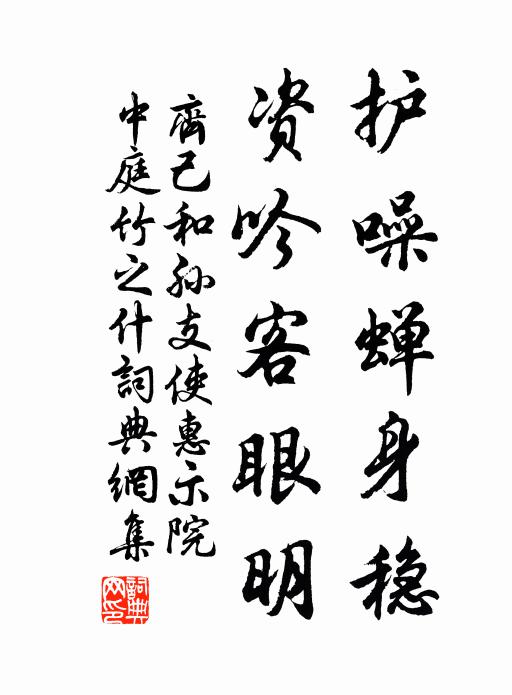 护噪蝉身稳
资吟客眼明
齊己和孙支使惠示院
中庭竹之什詞典網集
詞典网印